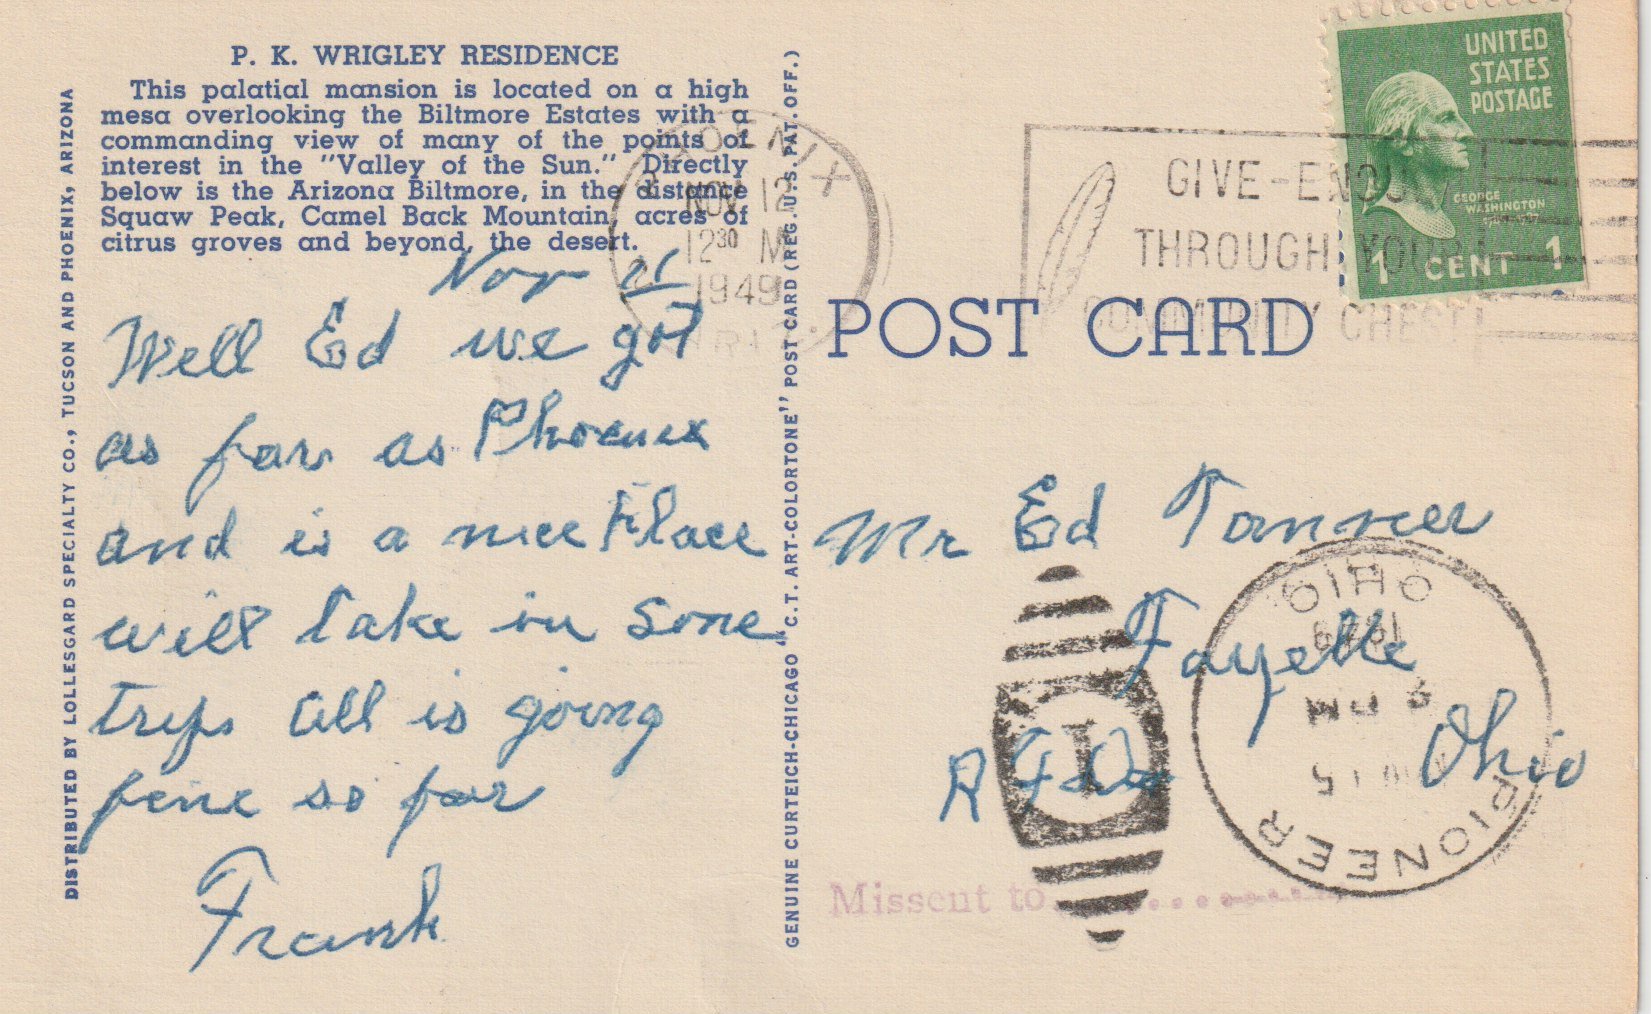 P. K. WRIGLEY RESIDENCE
This palatial mansion is located on a high
mesa overlooking the Biltmore Estates with a
commanding view of many of the points of
interest in the "Valley of the Sun." Directly
below is the Arizona Biltmore, in the distance
Squaw Peak, Camel Back Mountain, acres of
citrus groves and beyond, the desert.
DISTRIBUTED BY LOLLESGARD SPECIALTY CO., TUCSON AND PHOENIX, ARIZONA
Nov 11
Well Ed we got
as far as Phoenix
and is a nice Place
will take in some
trips all is going
fine so far
Frank
GENUINE CURTEICH-CHICAGO "C.T. ART-COLORTONE" POST CARD (REG. U.S. PAT. OFF.)
PHOENIX
NOV 12
12 30 M
1949
ARIZ.
GIVE-ENOUGH
THROUGH YOUR
COMMUNITY CHEST
UNITED
STATES
POSTAGE
GEORGE
WASHINGTON
1 CENT 1
POST CARD
Mr Ed Tanner
Fayette
Ohio
R F D
1
PIONEER
OHIO
1949
PM
15
Missent to